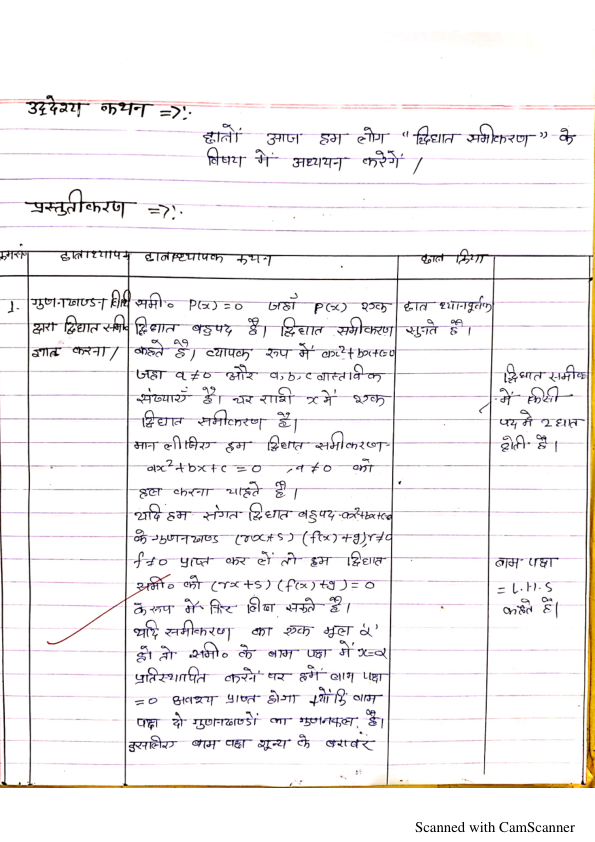 उद्देश्य कथन =>:-
छात्रों आज हम लोग "द्विघात समीकरण" के
विषय में अध्ययन करेगें /
प्रस्तुतीकरण =>:-
छात्राध्यापक कथन
छात्र क्रिया
1. गुणनखण्डन विधि
द्वारा द्विघात समी०
ज्ञात करना /
समी० P(x) = 0 जहाँ P(x) एक
द्विघात बहुपद है। द्विघात समीकरण
कहते हैं। व्यापक रूप में ax²+bx+c=0
जहा a ≠ 0 और a, b, c वास्तविक
संख्याएँ हैं। चर राशि x में एक
द्विघात समीकरण है।
मान लीजिए हम द्विघात समीकरण
ax²+bx+c = 0 , a ≠ 0 को
हल करना चाहते हैं।
यदि हम संगत द्विघात बहुपद ax²+bx+c
के गुणनखण्ड (rx+s) (f(x)+g), r≠0
f≠0 प्राप्त कर लें तो हम द्विघात
समी० को (rx+s) (f(x)+g) = 0
के रूप में फिर लिख सकते हैं।
यदि समीकरण का एक मूल 'α'
हो तो समी० के बाम पक्ष में x=α
प्रतिस्थापित करने पर हमें बाम पक्ष
=0 अवश्य प्राप्त होगा क्योंकि बाम
पक्ष दो गुणनखण्डों का गुणनफल है।
इसलिए बाम पक्ष शून्य के बराबर
छात्र ध्यानपूर्वक
सुनते हैं।
द्विघात समीक
में किसी
पद मे 2 घात
होती है।
बाम पक्ष
= L.H.S
कहते हैं।
Scanned with CamScanner